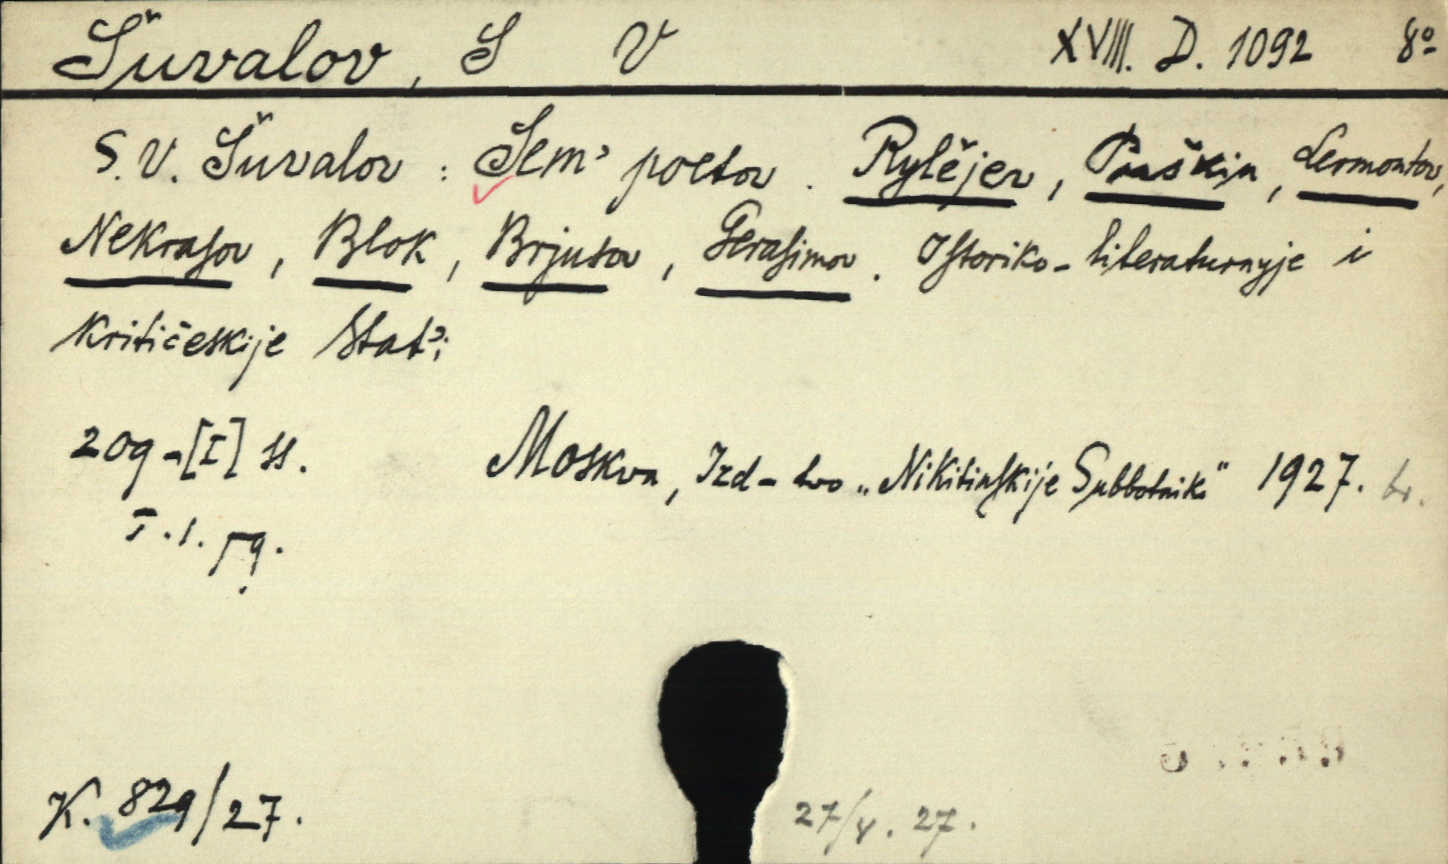 Šuvalov, S V XVIII. D. 1092 8º
S. V. Šuvalov : Sem' poetov. Rylějev, Puškin, Lermontov,
Nekrasov, Blok, Brjusov, Gerasimov. Istoriko-literaturnyje i
kritičeskije stat'i
209-[I] ss. Moskva, Izd-tvo „Nikitinskije Subbotniki" 1927. br.
K. 829/27.
27/V. 27.